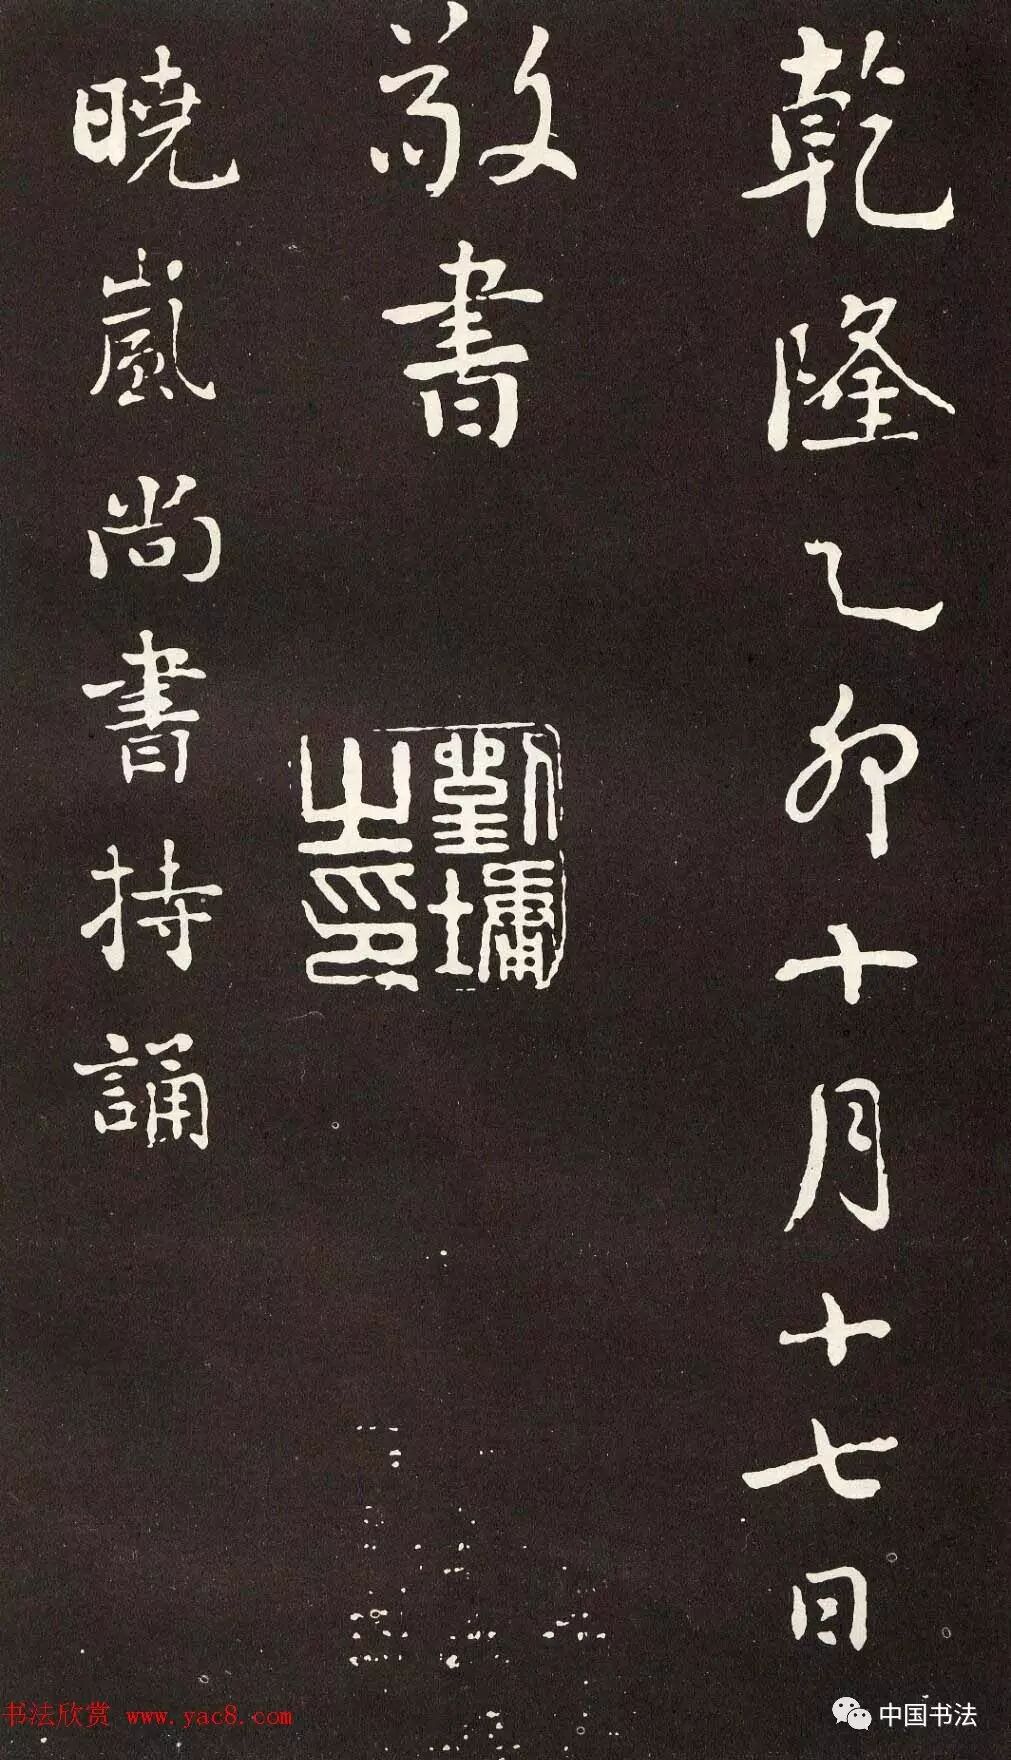 乾隆乙卯十月十七日
敬書
劉墉之印
曉嵐尚書持誦
书法欣赏 www.yac8.com
中国书法